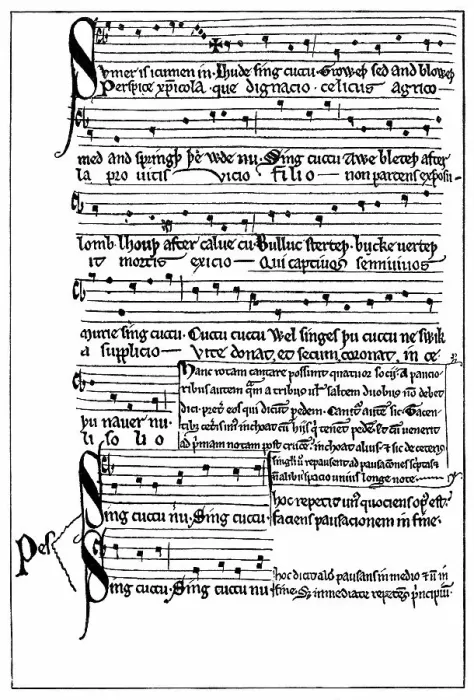 Sumer is icumen in. Lhude sing cuccu. Groweþ sed and bloweþ
Perspice xp̅icola. que dignacio. celicus agrico—
med and springþ þe wde nu. Sing cuccu Awe bleteþ after
la pro uitis vicio filio — non parcens exposu-
lomb. lhouþ after calue cu. Bulluc sterteþ. bucke uerteþ
it mortis exicio — Qui captiuos semiuiuos
murie sing cuccu. Cuccu cuccu Wel singes þu cuccu ne swik
a supplicio — Vite donat. et secum coronat. in ce
þu nauer nu.
li so lio
Hanc rotam cantare possunt quatuor socij. A paucio-
ribus autem q̃m a tribus ul' saltem duobus nõ debet
dici. pret̃ eos qui dicũt pedem. Canit' autẽ sic. Tacen-
tib; ceteris un' inchoat cũ hijs q̃ tenent pedẽ. Et cũ uenerit
ad p'mam notam post crucẽ. inchoat alius. & sic de ceteris
singli u' repausent ad pausaciones sc'ptas &
nõ alibi spacio unius longe note.
Pes
Sing cuccu nu. Sing cuccu.
hoc repetit un' quociens op' est.
faciens pausacionem in fine.
Sing cuccu. Sing cuccu nu
hoc dicit ali' pausans in medio & nõ in
fine. S; inmediate repetens p'ncipiũ.